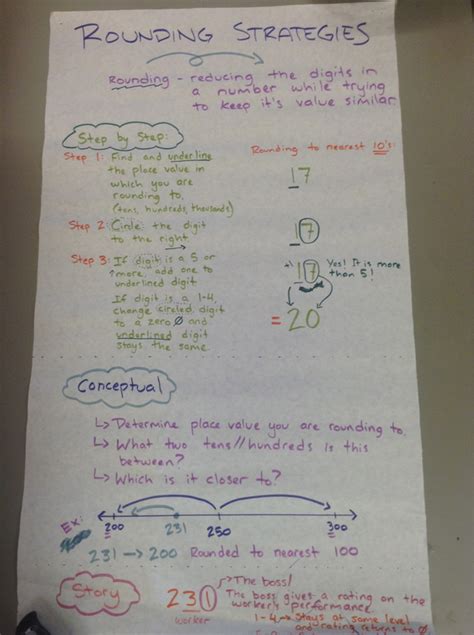 ROUNDING STRATEGIES
Rounding - reducing the digits in
a number while trying
to keep it's value similar.
Step by Step:
Step 1: Find and underline
the place value in
which you are
rounding to.
(tens, hundreds, thousands)
Step 2: Circle the digit
to the right
Step 3: If digit is a 5 or
more, add one to
underlined digit
If digit is a 1-4,
change circled digit
to a zero 0 and
underlined digit
stays the same.
Rounding to nearest 10's:
17
17
17 Yes! It is more
than 5!
= 20
Conceptual
↳ Determine place value you are rounding to.
↳ What two tens//hundreds is this
between?
↳ Which is it closer to?
Ex:
200 231 250 300
231 → 200 Rounded to nearest 100
Story
231
worker
→ The boss!
The boss gives a rating on the
worker's performance.
1-4 → Stays at same level
and rating returns to 0